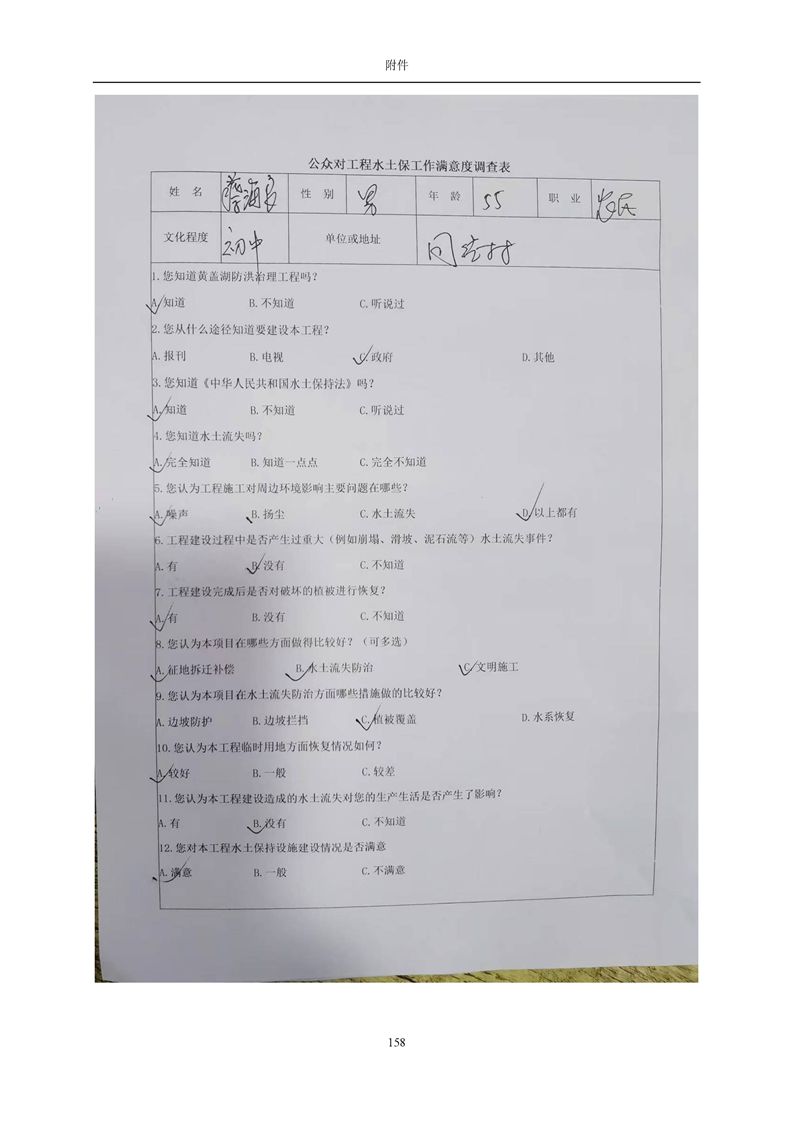 附件
公众对工程水土保工作满意度调查表
姓 名 性 别 男 年 龄 55 职 业 农民
文化程度 初中 单位或地址
1.您知道黄盖湖防洪治理工程吗？
A.知道 B.不知道 C.听说过
2.您从什么途径知道要建设本工程？
A.报刊 B.电视 C.政府 D.其他
3.您知道《中华人民共和国水土保持法》吗？
A.知道 B.不知道 C.听说过
4.您知道水土流失吗？
A.完全知道 B.知道一点点 C.完全不知道
5.您认为工程施工对周边环境影响主要问题在哪些？
A.噪声 B.扬尘 C.水土流失 D.以上都有
6.工程建设过程中是否产生过重大（例如崩塌、滑坡、泥石流等）水土流失事件？
A.有 B.没有 C.不知道
7.工程建设完成后是否对破坏的植被进行恢复？
A.有 B.没有 C.不知道
8.您认为本项目在哪些方面做得比较好？（可多选）
A.征地拆迁补偿 B.水土流失防治 C.文明施工
9.您认为本项目在水土流失防治方面哪些措施做的比较好？
A.边坡防护 B.边坡拦挡 C.植被覆盖 D.水系恢复
10.您认为本工程临时用地方面恢复情况如何？
A.较好 B.一般 C.较差
11.您认为本工程建设造成的水土流失对您的生产生活是否产生了影响？
A.有 B.没有 C.不知道
12.您对本工程水土保持设施建设情况是否满意
A.满意 B.一般 C.不满意
158